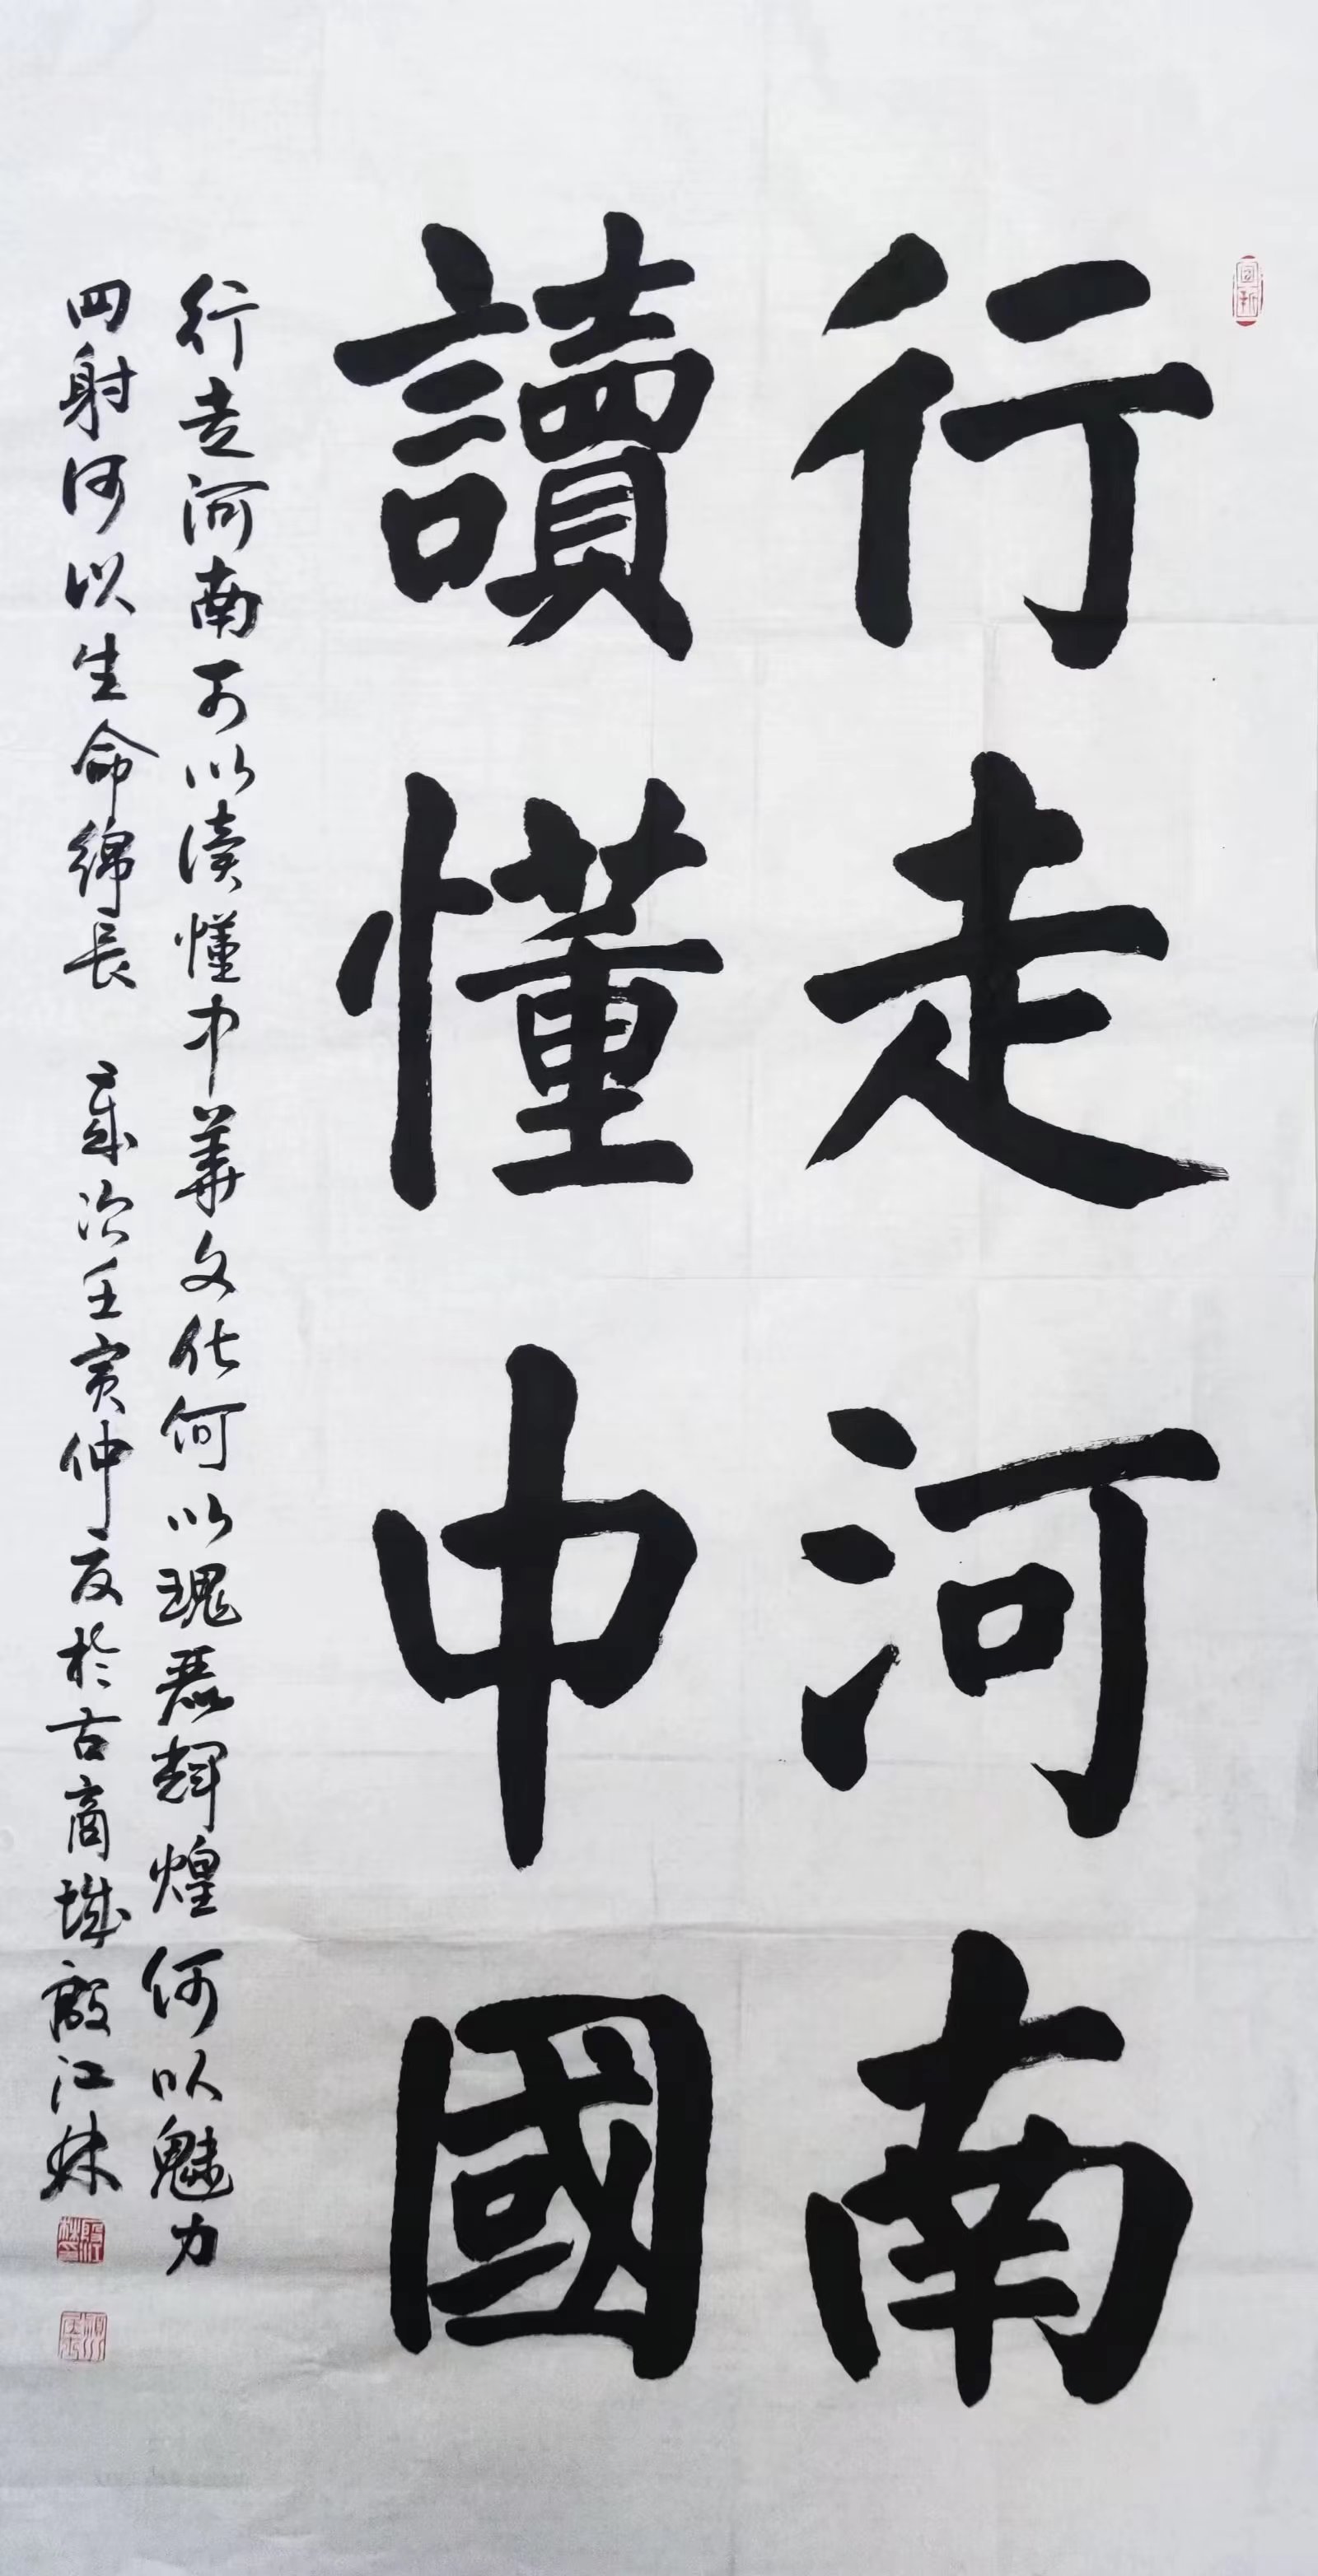 行走河南
讀懂中國
行走河南可以读懂中華文化何以瑰麗輝煌何以魅力
四射何以生命綿長 歲次壬寅仲夏於古商城殷江林